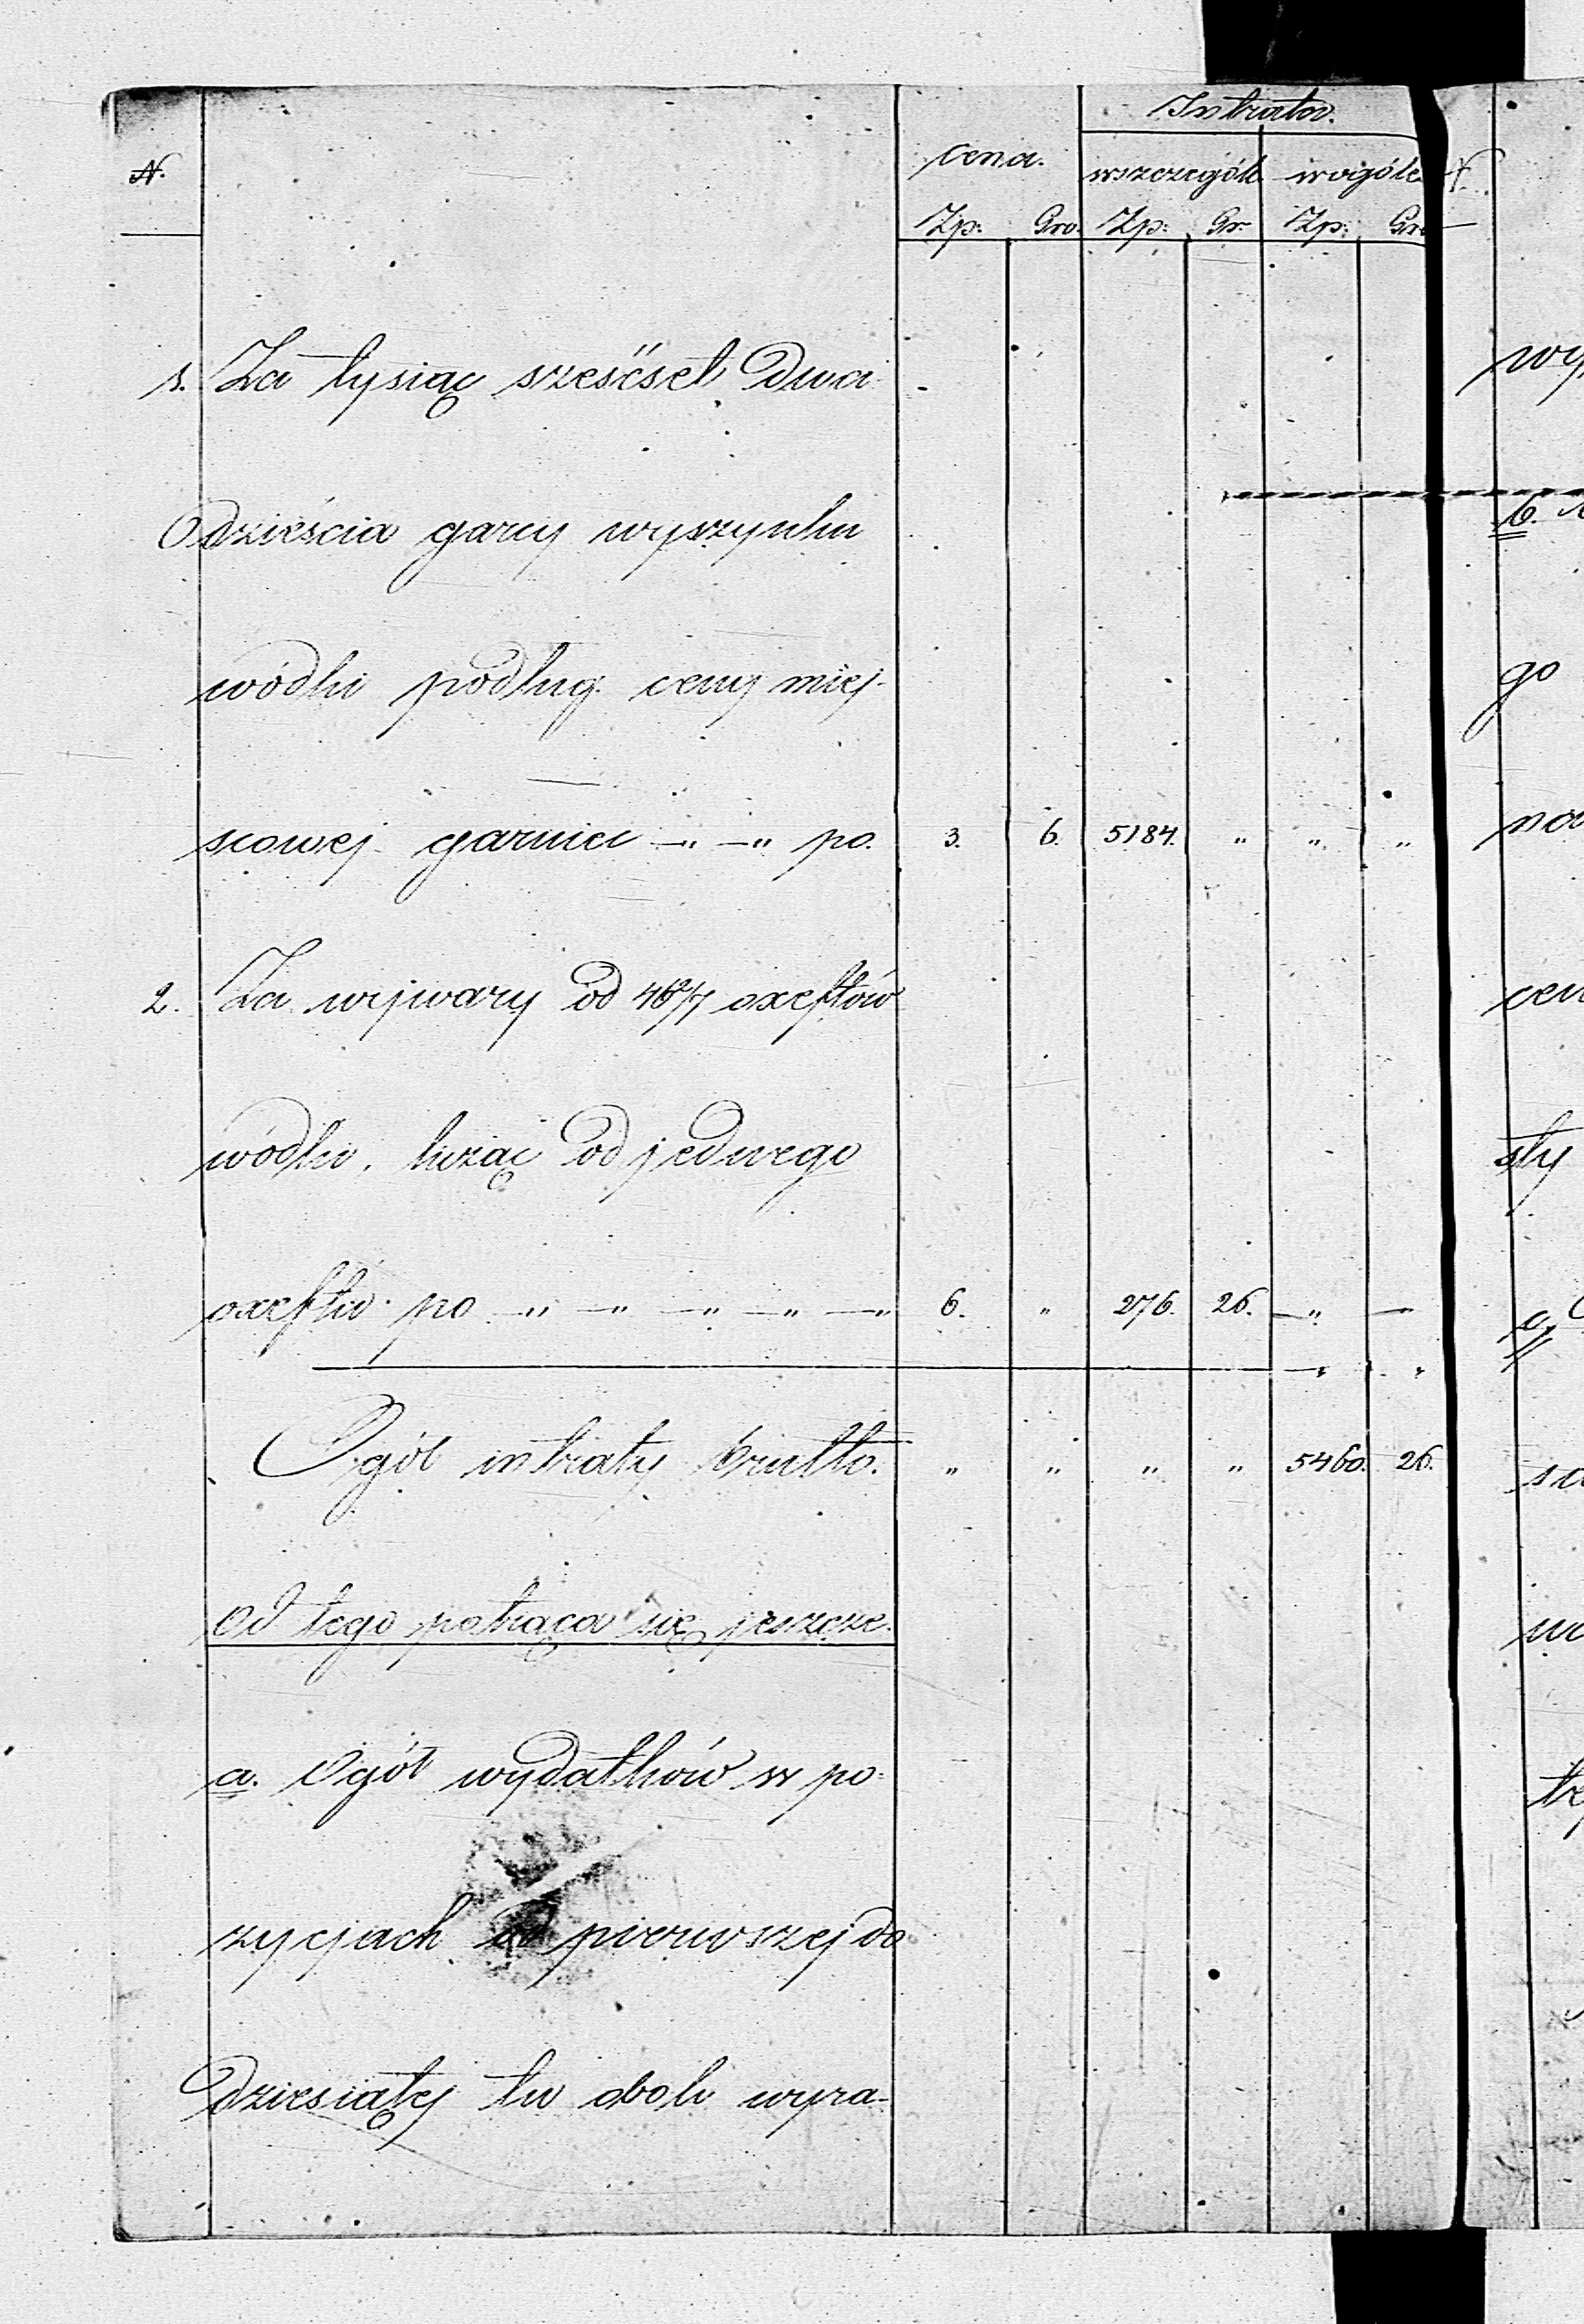 Intrata.
N. cena. wszczególe wogóle N.
Zp: Gro. Zp: Gr. Zp: Gro
1. Za tysiąc sześcset dwa-
dzieścia garcy wyszynku
wódki podług ceny miej-
scowej garniec —"—" po. 3. 6. 5184. " " "
2. Za wywary od 46 1/7 oxeftów
wódki, licząc od jednego
oxeftu po —"—"—"—"—" 6. " 276. 26. —" —
Ogół intraty brutto. " " " " 5460. 26.
Od tego potrąca się jeszcze.
a. Ogół wydatków w po-
zycjach od pierwszej do
dziesiątej tu obok wyra-
wy
b.
go
cen
sły